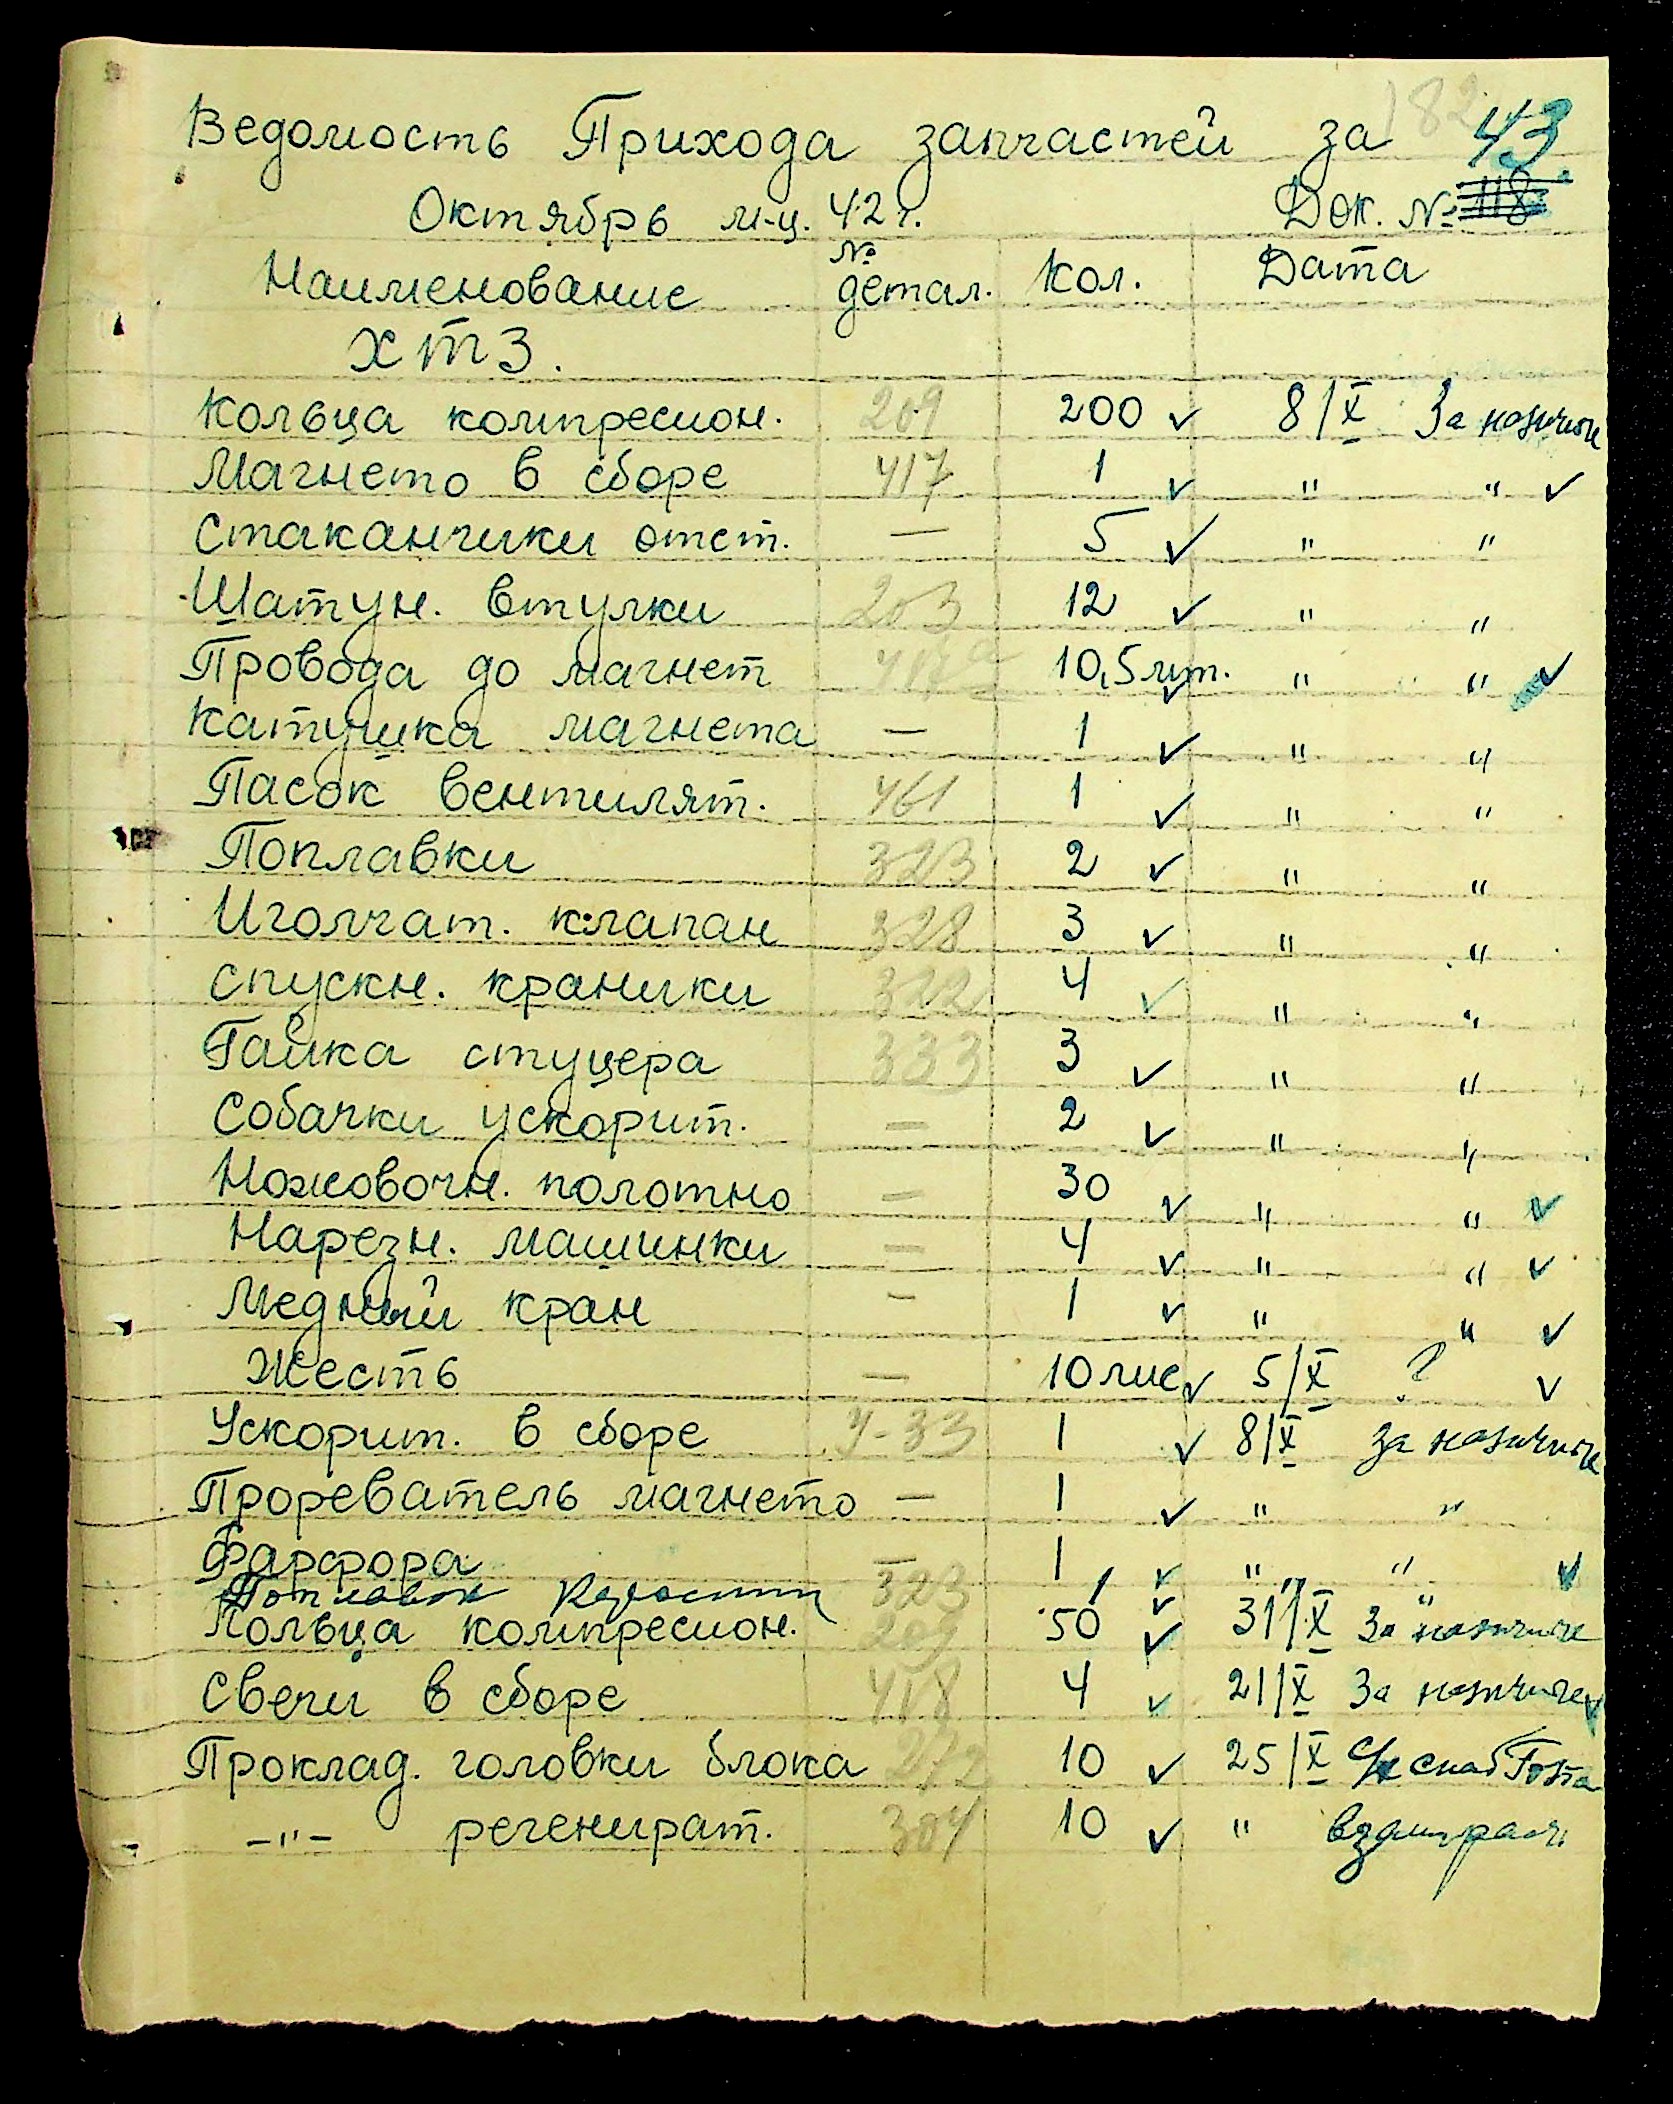 182
43
Ведомость Прихода запчастей за
Октябрь м-ц. 42 г. Док. № 118
Наименование № детал. Кол. Дата
ХТЗ.
Кольца компресион. 209 200 ✓ 8/X За наличные
Магнето в сборе 417 1 ✓ " " ✓
Стаканчики отст. — 5 ✓ " "
Шатун. втулки 203 12 ✓ " "
Провода до магнет 417а 10,5 мт. ✓ " " ✓
Катушка магнета — 1 ✓ " "
Пасок вентилят. 461 1 ✓ " "
Поплавки 323 2 ✓ " "
Иголчат. клапан 328 3 ✓ " "
Спускн. краники 322 4 ✓ " "
Гайка стуцера 333 3 ✓ " "
Собачки ускорит. — 2 ✓ " "
Ножовочн. полотно — 30 ✓ " " ✓
Нарезн. машинки — 4 ✓ " " ✓
Медный кран — 1 ✓ " " ✓
Жесть — 10 лис ✓ 5/X ? ✓
Ускорит. в сборе У-33 1 ✓ 8/X за наличные
Прореватель магнето — 1 ✓ " "
Фарфора — 1 ✓ " " ✓
Поплавок 323 1 ✓ " "
Кольца компресион. 209 50 ✓ 31/X За наличные
Свечи в сборе 418 4 ✓ 21/X За наличные ✓
Проклад. головки блока 272 10 ✓ 25/X снаб
–"– регенират. 304 10 ✓ "